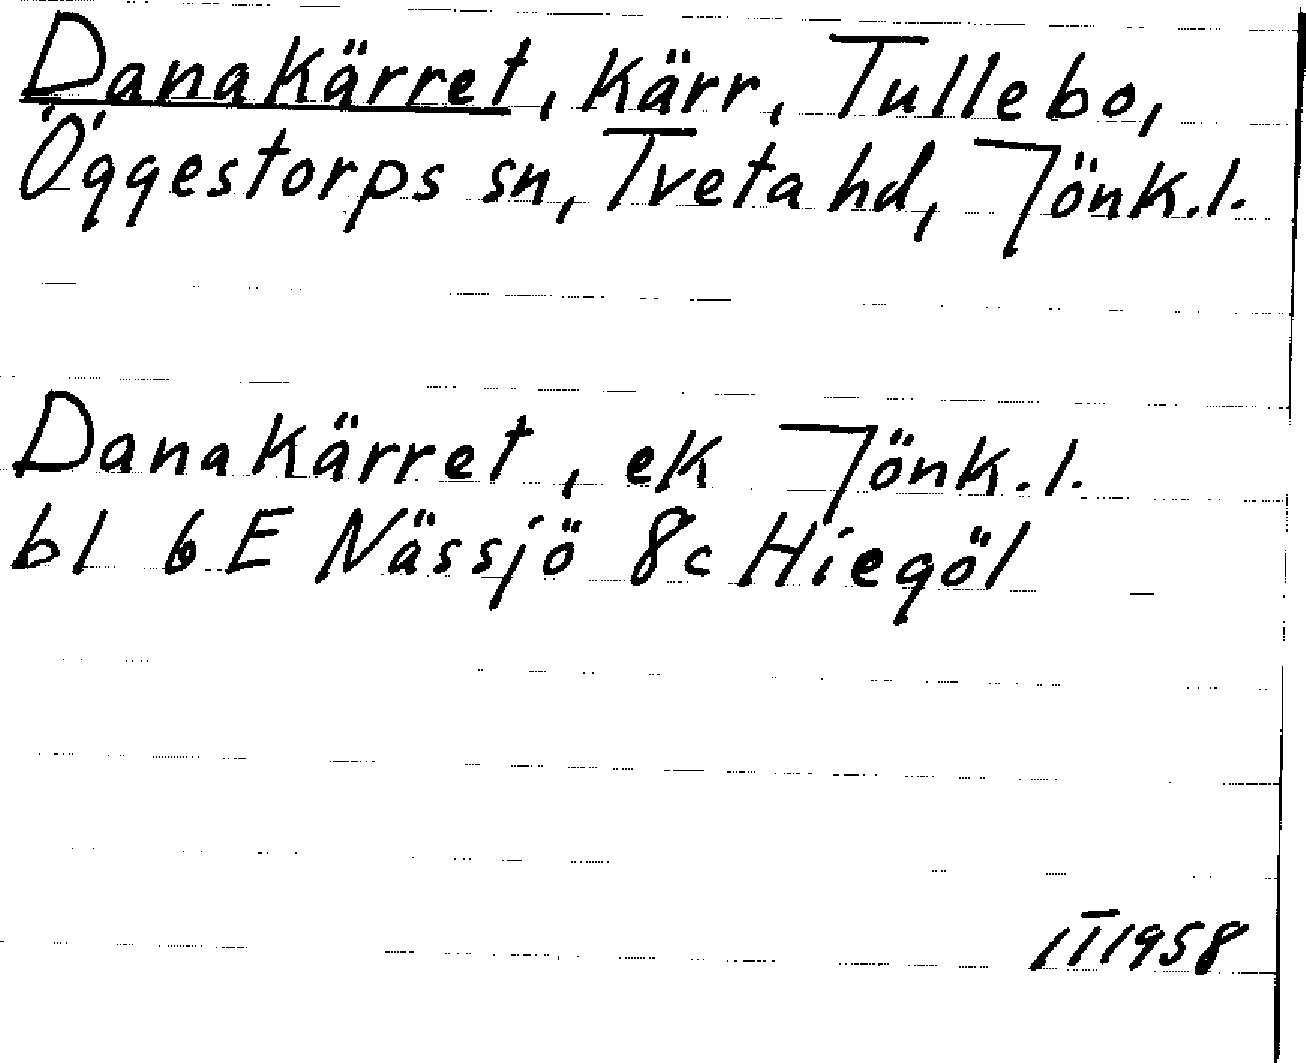 Danakärret, kärr, Tullebo,
Öggestorps sn, Tveta hd, Jönk.l.
Danakärret, ek Jönk.l.
bl 6E Nässjö 8c Hiegöl
1958